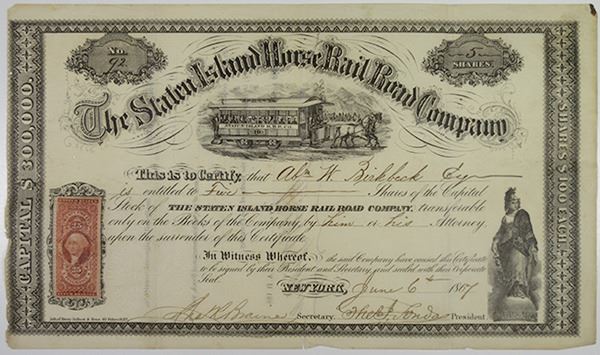 No.
92
5
SHARES.
The Staten Island Horse Rail Road Company
STATEN ISLAND H.R.R. CO.
CAPITAL $300,000.
SHARES $100 EACH.
This is to Certify, that Abm W Birkbeck Esqr
is entitled to Five Shares of the Capital
Stock of THE STATEN ISLAND HORSE RAIL ROAD COMPANY, transferable
only on the Books of the Company, by him or his Attorney,
upon the surrender of this Certificate.
In Witness Whereof, the said Company have caused this Certificate
to be signed by their President and Secretary, and sealed with their Corporate
Seal.
NEW YORK, June 6th 1867
Secretary.
President